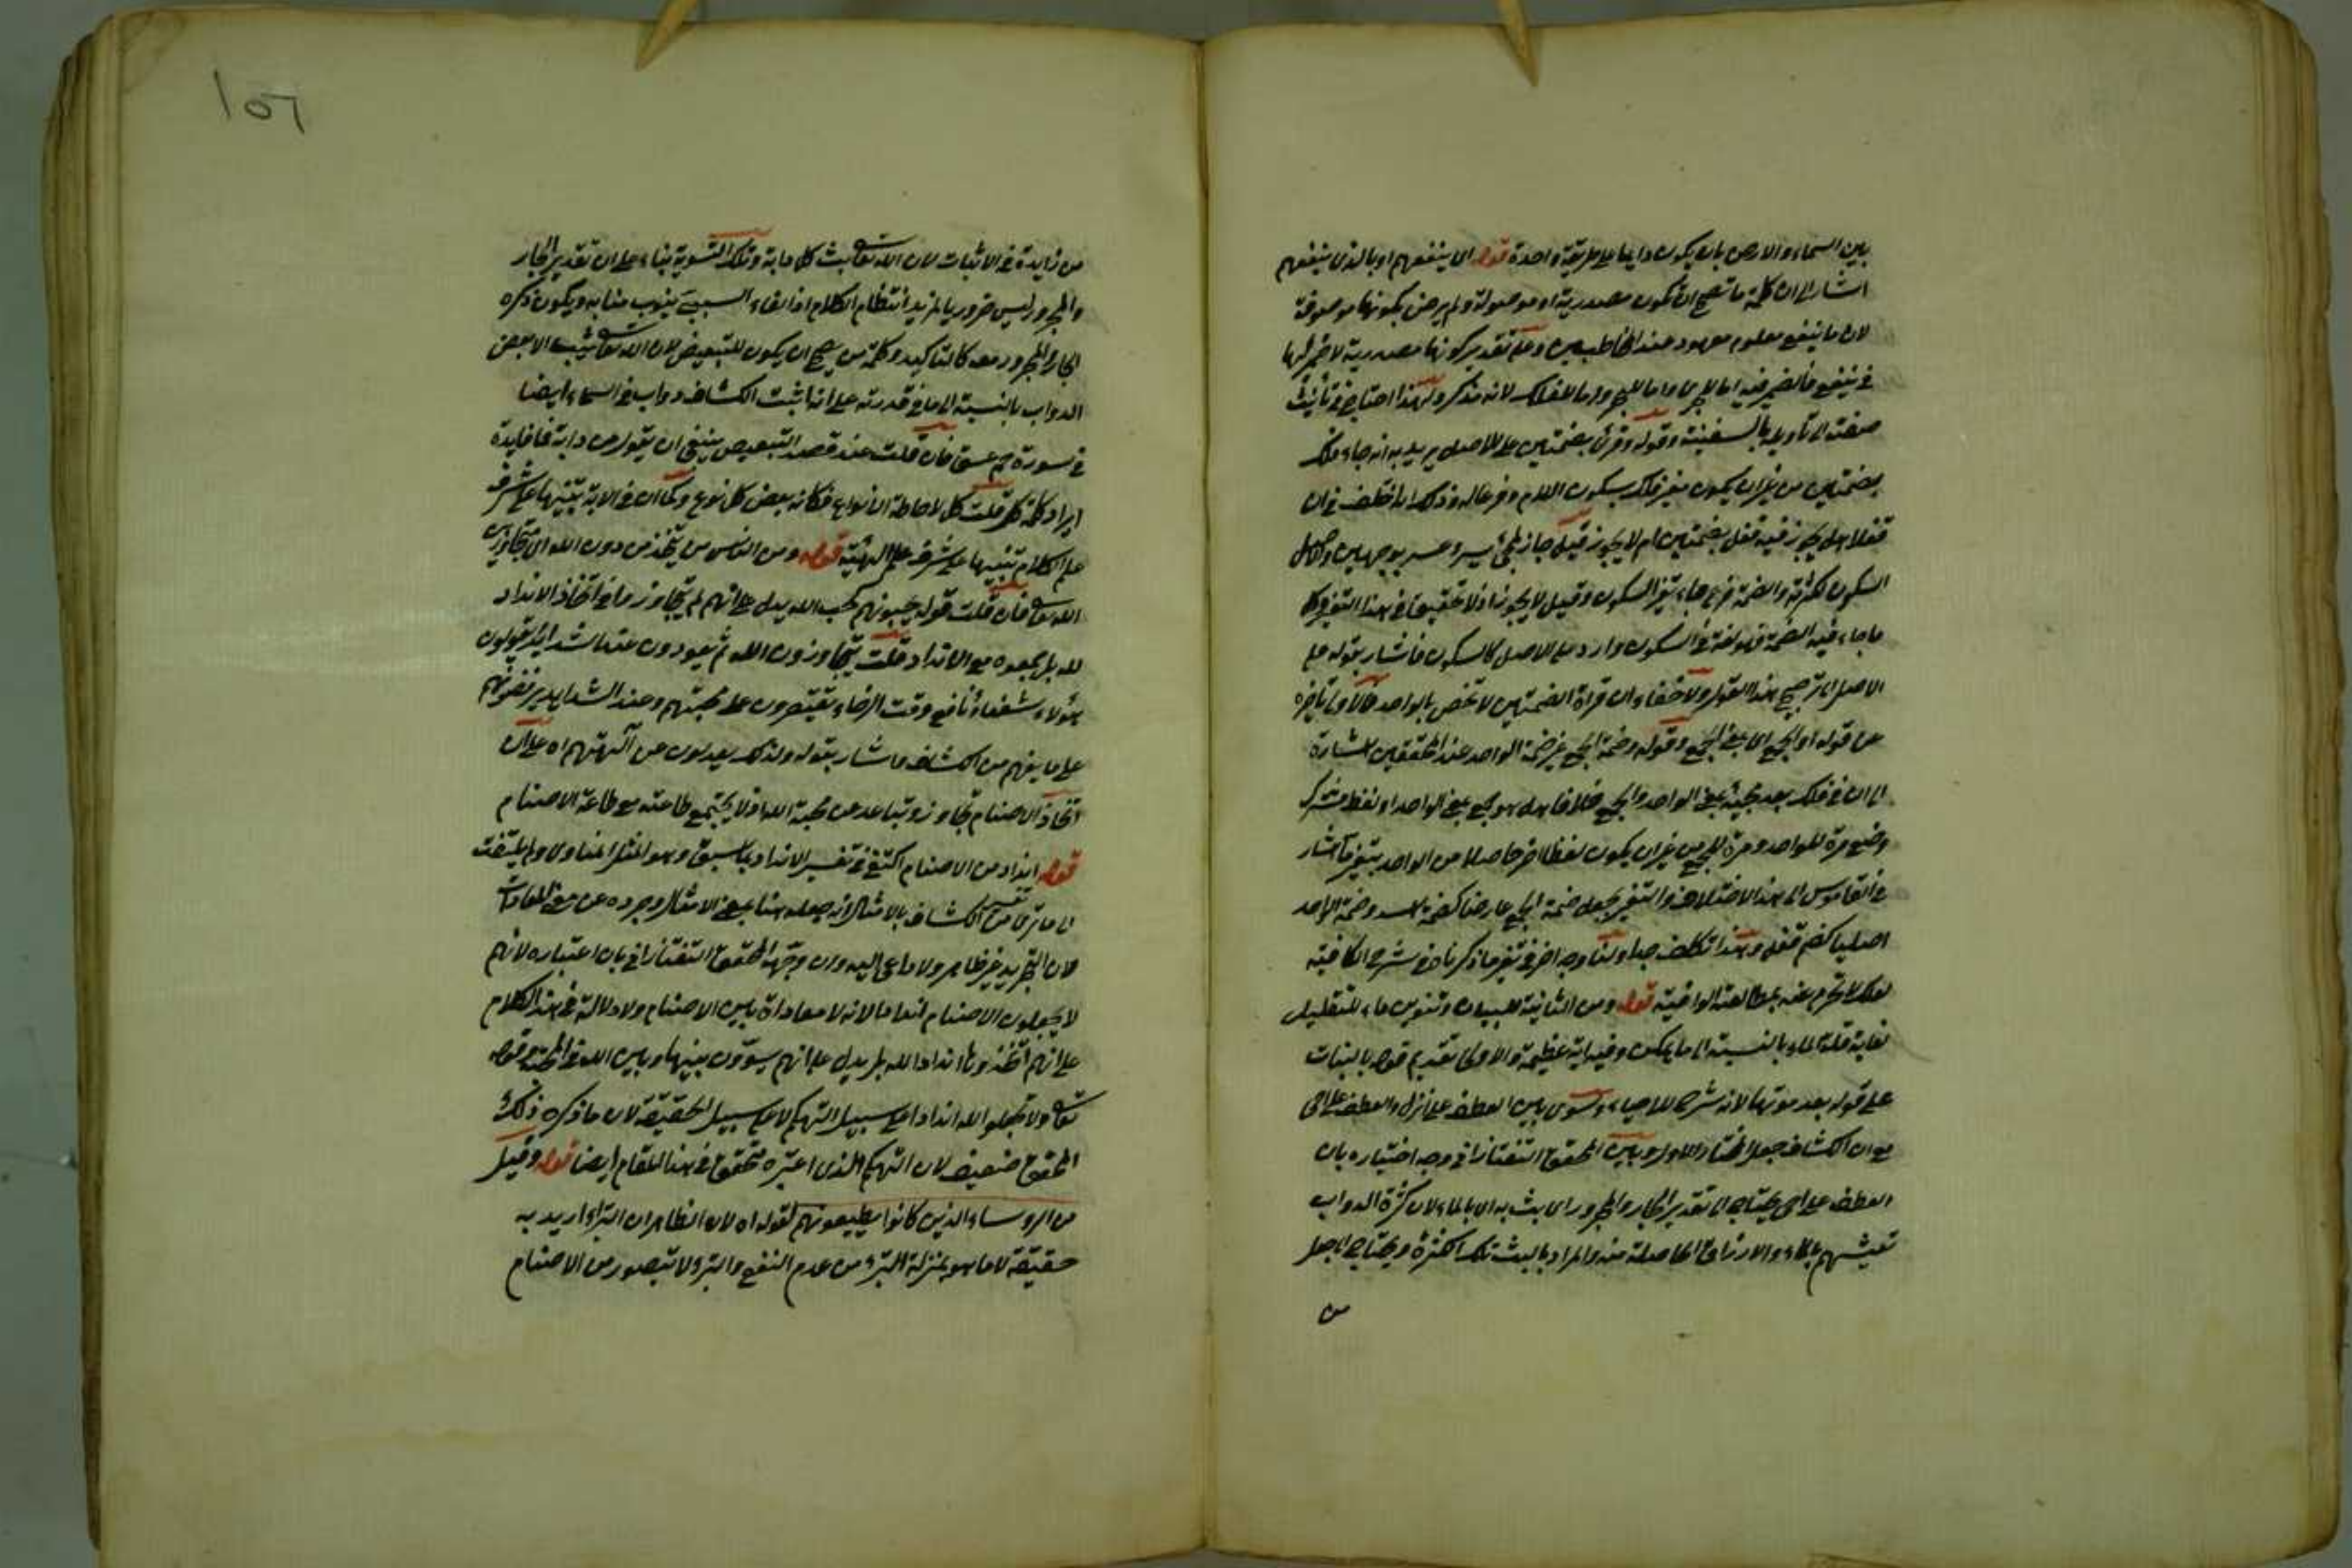 بين السماء والارض بان يكون دايما على طريقة واحدة قوله اى ينفعهم او بالذى ينفعهم
اشار الى ان كلمة ما تصح ان تكون مصدرية او موصولة ولم يرض بكونها موصوفة
لان ما ينفع معلوم معهود عند المخاطبين وعلى تقدير كونها مصدرية لا ضمير لها
فى ينفع فالضمير فيه اما للجرى واما للبحر واما للفلك لانه مذكر ولهذا احتاج فى تأنيث
صفته الى تأويله بالسفينة وقوله وقرئ بضمتين على الاصل يريد به انه جاء فلك
بضمتين من غير ان يكون مغير فلك بسكون اللام وفرعا له وذلك انه اختلف فى ان
فعلا هل يجوز فيه فعل بضمتين ام لا يجوز قيل جاز لمجئ يسر وعسر بوجهين والاصل
السكون لكثرته والضمة فرع جاء بتغير السكون وقيل لا يجوز اذ لا تحقيق فى هذا التغير وكل
ما جاء فيه الضمة فهو لغة فى السكون وارد على الاصل كالسكون فاشار بقوله على
الاصل الى ترجيح هذا القول ولا خفاء ان قراة الضمتين لا تخص بالواحد فالاولى تأخيره
عن قوله او الجمع اى بمعنى الجمع وقوله وضمة الجمع غير ضمة الواحد عند المحققين اشارة
الى ان فى فلك بعد مجيئه بمعنى الواحد والجمع خلافا هل هو جمع بمعنى الواحد او لفظ مشترك
وضع مرة للواحد ومرة للجمع من غير ان يكون لفظا اخر حاصلا من الواحد بتغير ما اشار
فى القاموس الى هذا الاختلاف والتغير بجعل ضمة الجمع عارضا كضمة اسد وضمة الواحد
اصليا كضم قفل وهذا تكلف جدا ولنا وجه اخر فى تغير ما ذكرناه فى شرح الكافية
لعلك لا تحرم عنه بمطالعته الوافية قوله ومن الثانية للبيان وتنوين ماء للتقليل
لغاية قلة الماء بالنسبة الى ما يمكن وفيه اية عظيمة والاولى تقديم قوله بالنبات
على قوله بعد موتها لانه شرح للاحياء وسوى بين العطف على انزل والعطف على احى
مع ان الكشاف جعل المختار الاول وبين المحقق التفتازانى وجه اختياره بان
العطف على احى يحتاج الى تقدير الجار والمجرور اى بث به اى بالماء لان كثرة الدواب
تعيشهم بالماء والارزاق الحاصلة منه والمراد بالبث تلك الكثرة ويحتاج الى جعل
من
١٥٦
من زايدة فى الاثبات لان الله تعالى بث كل دابة وتلك التسوية بناء على ان تقدير الجار
والمجرور ليس ضروريا لمزيد انتظام الكلام اذ الفاء السببية ينوب منابه ويكون ذكره
الجار والمجرور معه كالتاكيد وكلمة من يصح ان يكون للتبعيض لان الله تعالى يبث الا بعض
الدواب بالنسبة الى ما فى قدرته على انه اثبت الكشاف دواب فى السماء ايضا
فى سورة حم عسق فان قلت عند قصد التبعيض ينبغى ان يقول من دابة فما فايدة
ايراد كلمة كل قلت كل لاحاطة الانواع فكانه بعض كل نوع وكما ان فى الاية تنبيها على شرف
علم الكلام تنبيها على شرف علم الهيئة قوله ومن الناس من يتخذ من دون الله اى متجاوزين
الله تعالى فان قلت قوله يحبونهم كحب الله يدل على انهم لم يتجاوز ما فى اتخاذ الانداد
لله بل جمعوه مع الانداد قلت يتجاوزون الله ثم يعودون عند الشدائد يقولون
هؤلاء شفعاؤنا فى وقت الرخاء يقتصرون على محبتهم وعند الشدايد يرفضونهم
على ما يفهم من الكشاف ما اشار بقوله ولذلك يعدلون عن آلهتهم اه على ان
اتخاذ الاصنام تجاوز وتباعد من محبة الله اذ لا يجتمع طاعته مع طاعة الاصنام
قوله انداد من الاصنام اكتفى فى تفسير الانداد بما سبق وهو المثل المناوى ولم يلتفت
الى ما ترقى من تفسير الكشاف بالامثال انه جعله هنا بمعنى الامثال وجرده عن معنى المعاداة
لان التجريد غير ظاهر ولا داعى اليه وان وجهه المحقق التفتازانى بان اعتباره لانهم
لا يجعلون الاصنام اندادا لانه لا معاداة بين الاصنام ولا دلالة فى هذا الكلام
على انهم اتخذوها اندادا لله بل يدل على انهم يسوون بينها وبين الله فى المحبة وقوله
تعالى ولا تجعلوا لله اندادا على سبيل التهكم لا على سبيل الحقيقة لان ما ذكره ذلك
المحقق ضعيف لان التهكم الذى اعتبره متحقق فى هذا المقام ايضا قوله وقيل
من الروساء الذين كانوا يطيعونهم لقوله اه لان الظاهر ان التبرأ اريد به
حقيقة لا ما هو بمنزلة التبرء من عدم النفع والتبرء لا يتصور من الاصنام